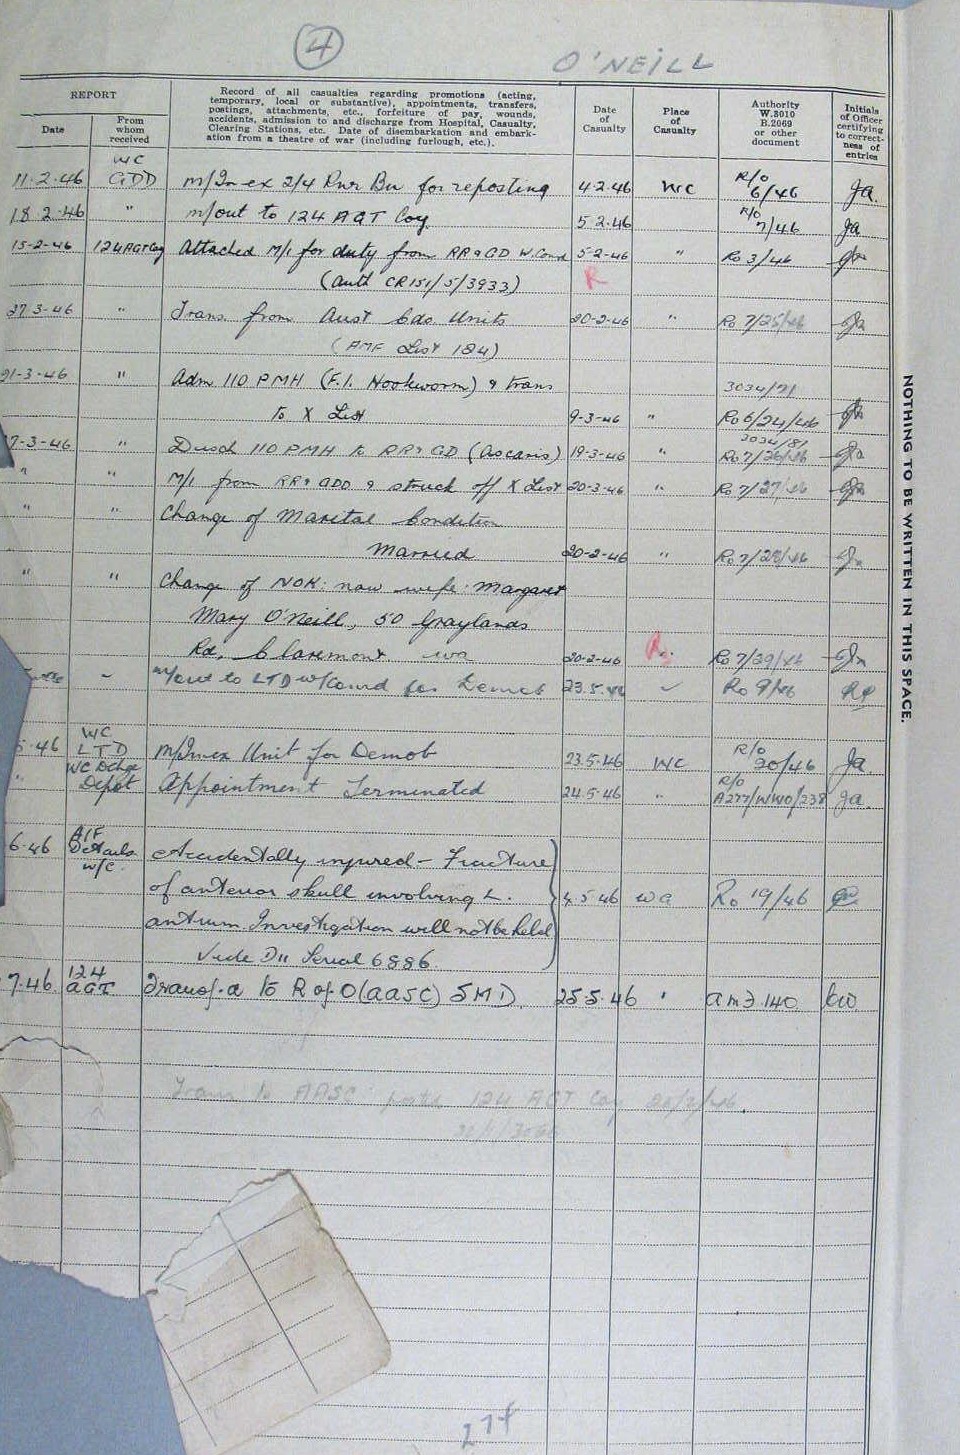 4
O'NEILL
REPORT
Date
From whom received
Record of all casualties regarding promotions (acting,
temporary, local or substantive), appointments, transfers,
postings, attachments, etc., forfeiture of pay, wounds,
accidents, admission to and discharge from Hospital, Casualty,
Clearing Stations, etc. Date of disembarkation and embark-
ation from a theatre of war (including furlough, etc.).
Date of Casualty
Place of Casualty
Authority W.3010 B.2069 or other document
Initials of Officer certifying to correct- ness of entries
WC
11.2.46 GDD m/In ex 2/4 Pnr Bn for reposting 4-2-46 WC R/o 6/46 Ja.
18 2-46 " m/out to 124 AGT Coy 5-2-46 R/o 7/46 Ja
15-2-46 124AGTCoy Attached M/I for duty from RR&GD W.Comd 5-2-46 " Ro 3/46
(Auth CR151/5/3933) R
27 3-46 " Trans from Aust Cds Units 20-2-46 " Ro 7/25/46
(AMF List 184)
21-3-46 " Adm 110 PMH (F.I. Hookworm) & trans 3034/71
to X List 9-3-46 " Ro 6/24/46
7-3-46 " Disch 110 PMH to RR&GD (Ascaris) 19-3-46 " 3034/81 Ro 7/26/46
" " M/I from RR&GDD & struck off X List 20-3-46 " Ro 7/27/46
" " Change of Marital Condition
Married 20-2-46 " Ro 7/28/46
" " Change of NOK: now wife: Margaret
Mary O'Neill, 50 Graylands
Rd, Claremont wa 20-2-46 R Ro 7/29/46
m/out to LTD w/Comd for Demob 23.5.46 Ro 9/46
5.46 WC LTD m/In ex Unit for Demob 23.5.46 WC R/o 20/46 Ja.
" WC Dchge Depot Appointment Terminated 24.5.46 " R/o A277/WWO/238 Ja.
6.46 AIF Details w/c. Accidentally injured - Fracture
of anterior skull involving L. 4.5.46 wa Ro 19/46
antrum. Investigation will not be held
Vide D11 Serial 6886.
7.46 124 AGT Transf.d to R of O (AASC) 5MD 25.5.46 " 140
Trans to AASC posted 124 AGT Coy 20/2/46.
NOTHING TO BE WRITTEN IN THIS SPACE.